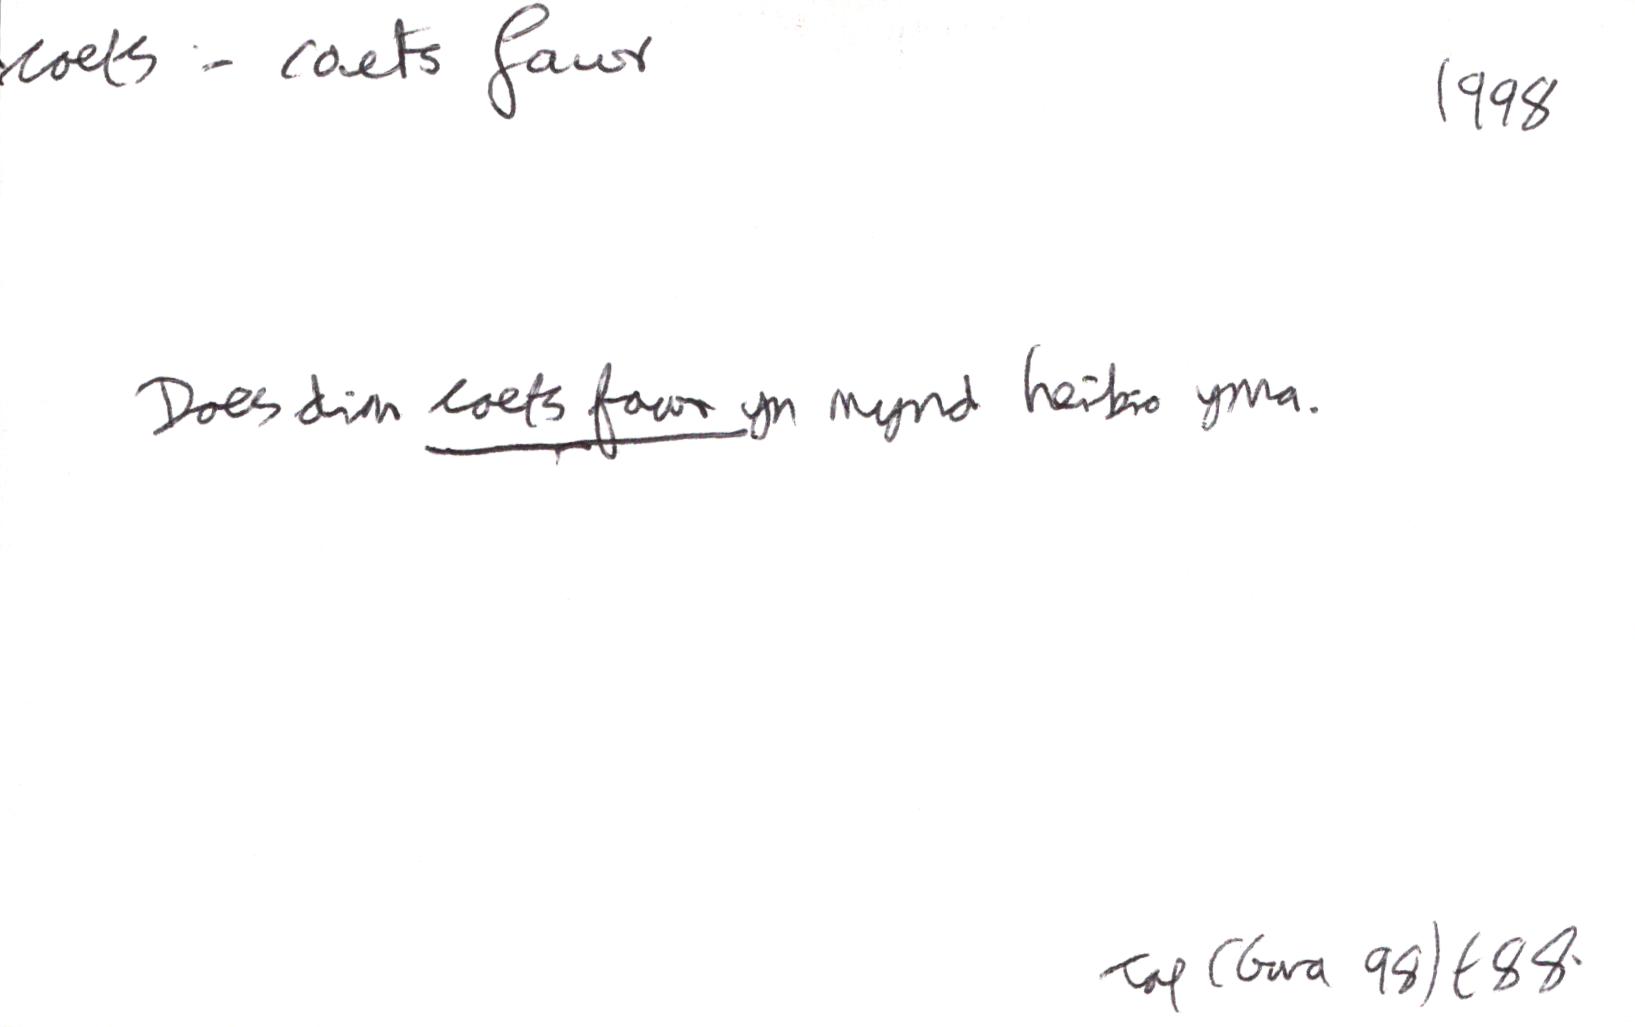 coets :- coets fawr
1998
Does dim coets fawr yn mynd heibio yma.
Tal (Gwa 98) t 88.